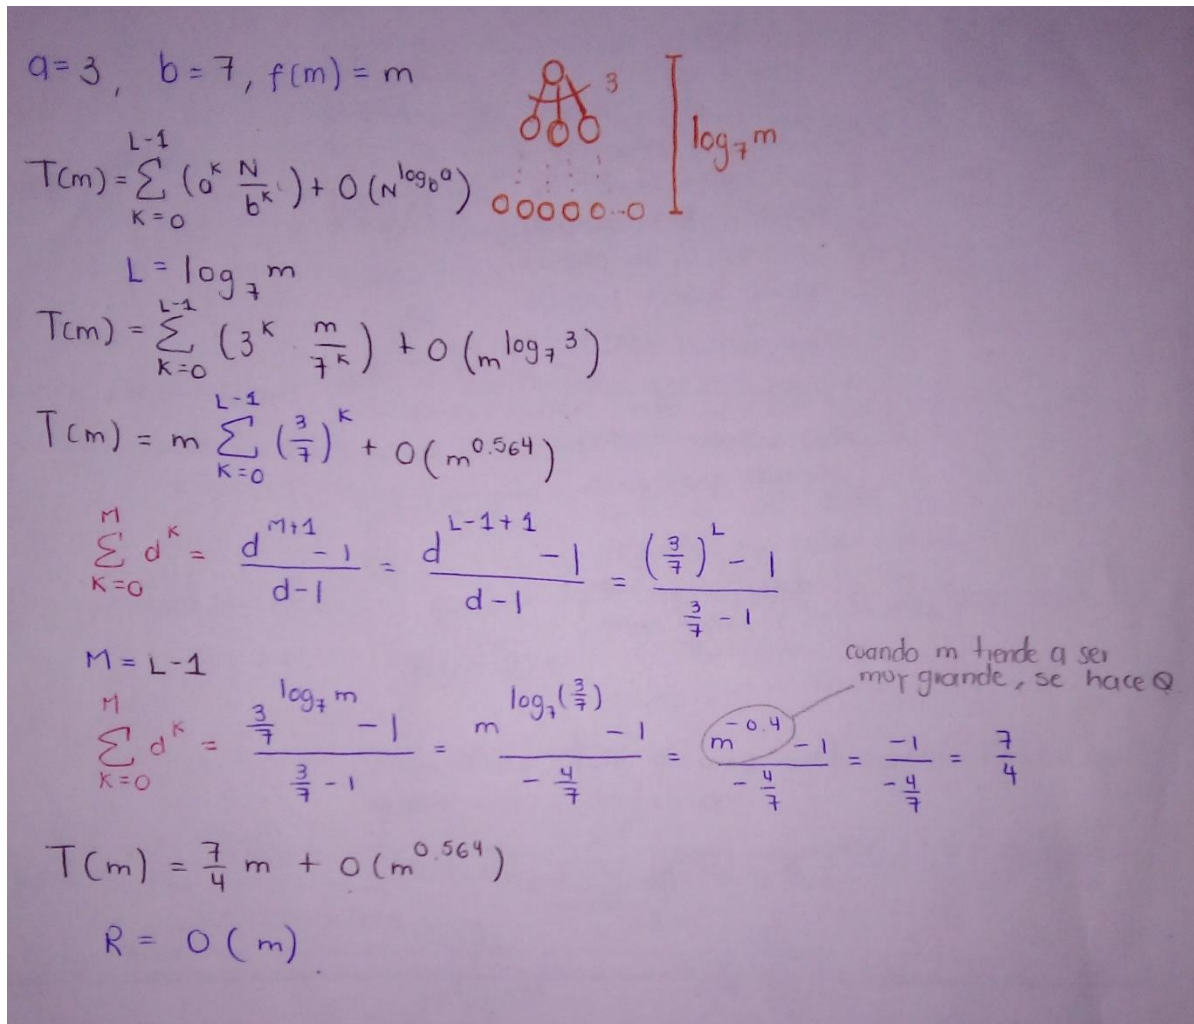 a=3, b=7, f(m)=m
3
log₇m
T(m) = Σ_{K=0}^{L-1} (a^K N/b^K) + O(N^{log_b a})
L = log₇m
T(m) = Σ_{K=0}^{L-1} (3^K m/7^K) + O(m^{log₇3})
T(m) = m Σ_{K=0}^{L-1} (3/7)^K + O(m^{0.564})
Σ_{K=0}^{M} d^K = (d^{M+1} - 1)/(d-1) = (d^{L-1+1} - 1)/(d-1) = ((3/7)^L - 1)/(3/7 - 1)
M = L-1
cuando m tiende a ser
muy grande, se hace 0
Σ_{K=0}^{M} d^K = (3/7^{log₇m} - 1)/(3/7 - 1) = (m^{log₇(3/7)} - 1)/(-4/7) = (m^{-0.4} - 1)/(-4/7) = (-1)/(-4/7) = 7/4
T(m) = 7/4 m + O(m^{0.564})
R = O(m)